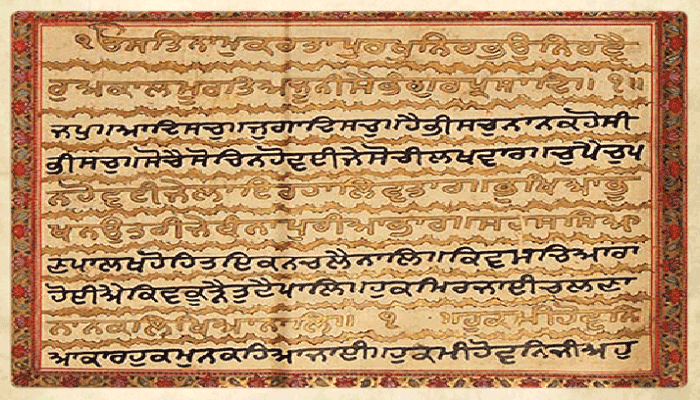 ੴਸਤਿਨਾਮੁਕਰਤਾਪੁਰਖੁਨਿਰਭਉਨਿਰਵੈ
ਰੁਅਕਾਲਮੂਰਤਿਅਜੂਨੀਸੈਭੰਗੁਰਪ੍ਰਸਾਦਿ॥੧॥
ਜਪੁ॥ਆਦਿਸਚੁ॥ਜੁਗਾਦਿਸਚੁ॥ਹੈਭੀਸਚੁਨਾਨਕਹੋਸੀ
ਭੀਸਚੁ॥ਸੋਚੈਸੋਚਿਨਹੋਵਈਜੇਸੋਚੀਲਖਵਾਰ॥ਚੁਪੈਚੁਪ
ਨਹੋਵਈਜੇਲਾਇਰਹਾਲਿਵਤਾਰ॥ਭੁਖਿਆਭੁ
ਖਨਉਤਰੀਜੇਬੰਨਾਪੁਰੀਆਭਾਰ॥ਸਹਸਸਿਆ
ਣਪਾਲਖਹੋਹਿਤਇਕਨਚਲੈਨਾਲਿ॥ਕਿਵਸਚਿਆਰਾ
ਹੋਈਐਕਿਵਕੂੜੈਤੁਟੈਪਾਲਿ॥ਹੁਕਮਿਰਜਾਈਚਲਣਾ
ਨਾਨਕਲਿਖਿਆਨਾਲਿ॥੧॥ਹੁਕਮੀਹੋਵਨਿ
ਆਕਾਰਹੁਕਮੁਨਕਹਿਆਜਾਈ॥ਹੁਕਮੀਹੋਵਨਿਜੀਅਹੁ